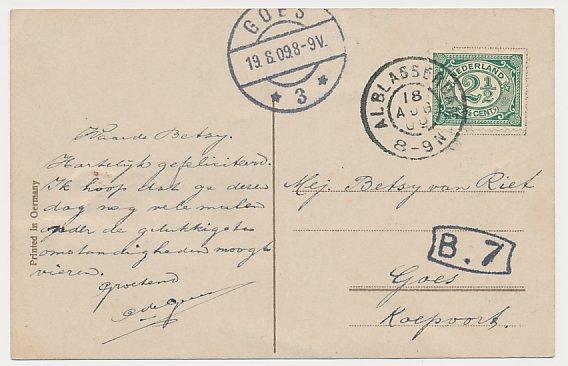 GOES
19. 8. 09. 8-9V.
* 3 *
ALBLASSERDAM
18
AUG
09
8-9N
NEDERLAND
2½
CENT
Waarde Betsy.
Hartelijk gefeliciteerd.
Ik hoop dat ge dezen
dag nog vele malen
onder de gelukkigste
omstandigheden moogt
vieren.
Groetend
Mej. Betsy van Riet
B.7
Goes
Koepoort.
Printed in Germany